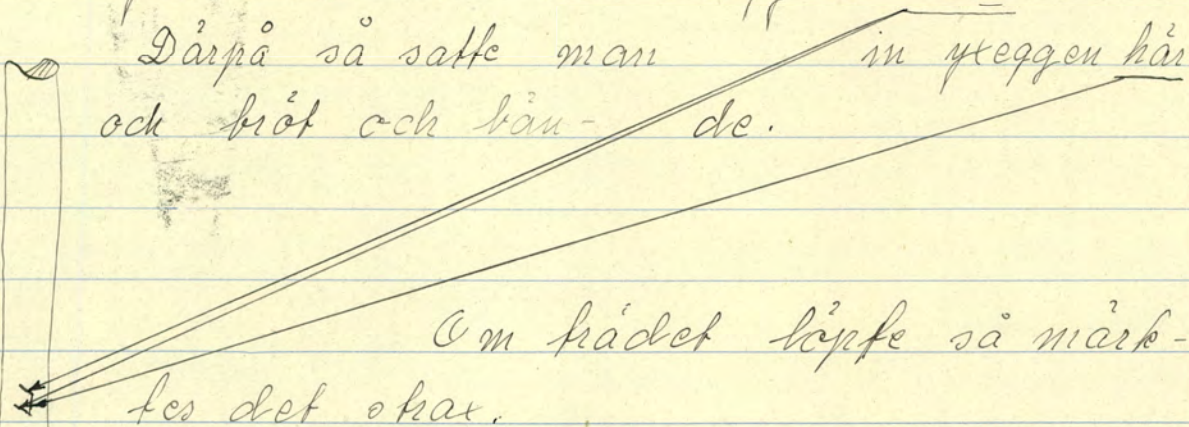 Därpå så satte man in yxeggen här
och bröt och bän- de.
Om trädet löpte så märk-
tes det strax.